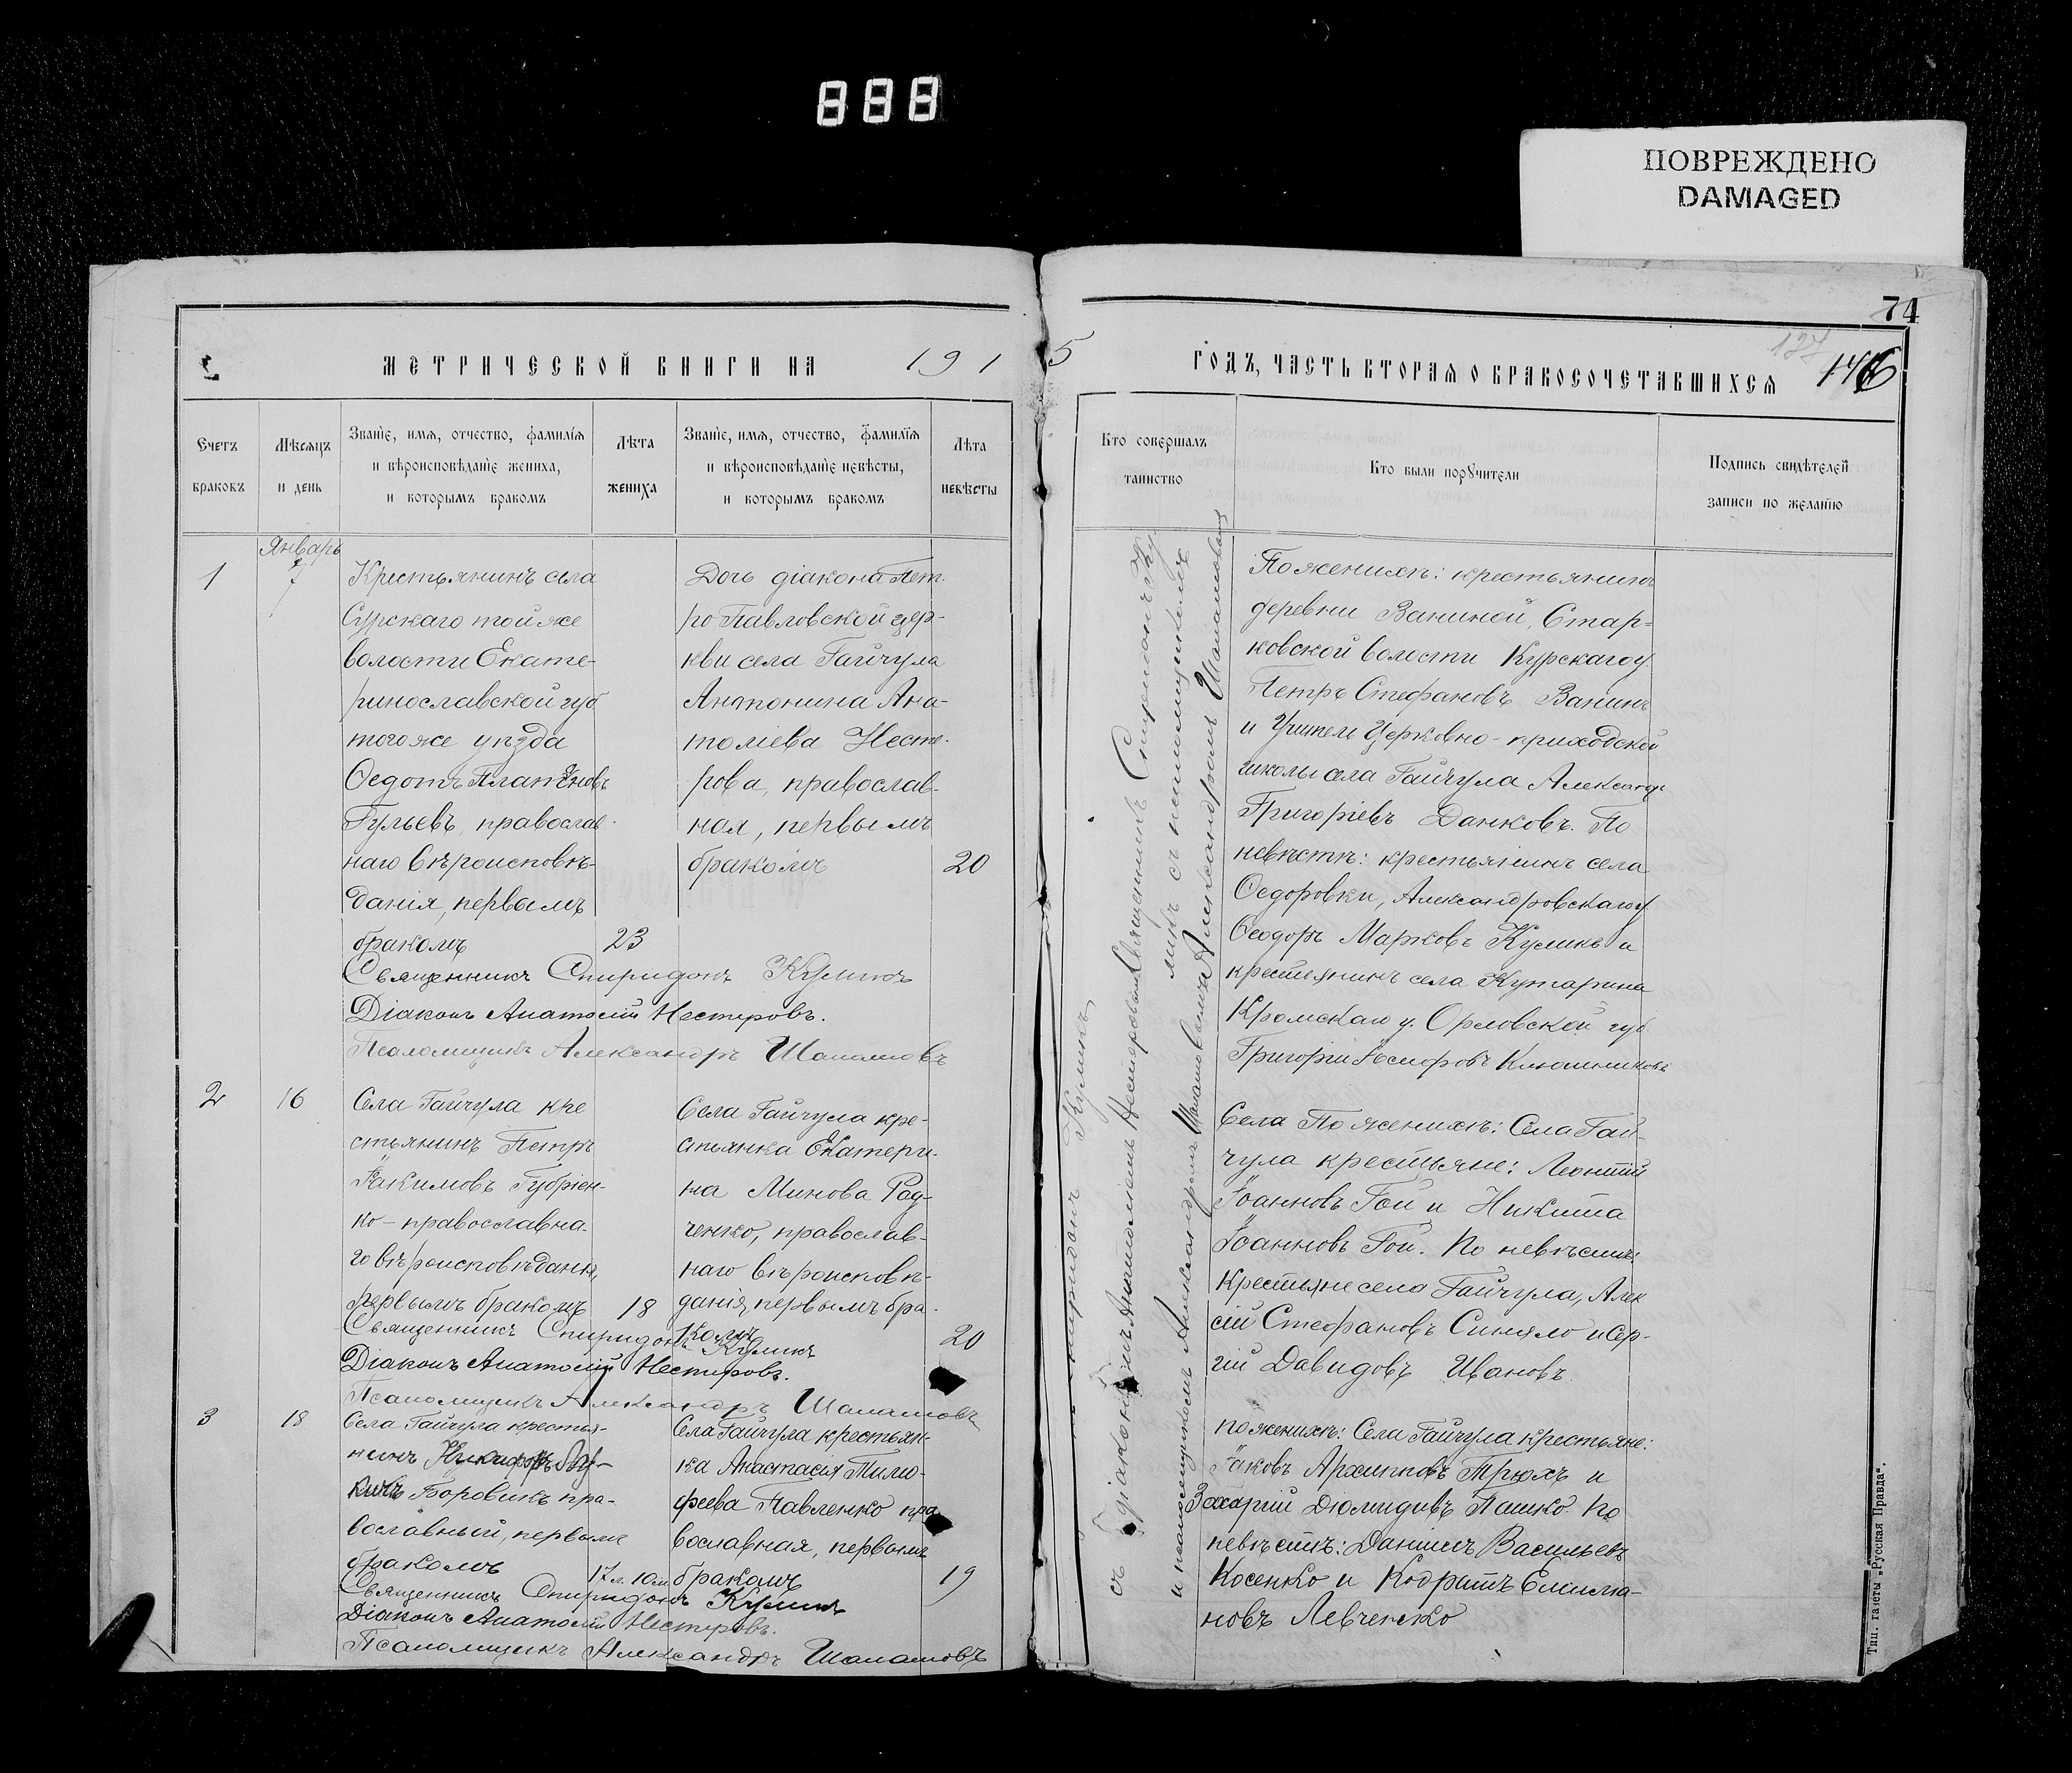 888
ПОВРЕЖДЕНО
DAMAGED
74
МЕТРИЧЕСКОЙ КНИГИ НА 191
5 ГОДЪ, ЧАСТЬ ВТОРАЯ О БРАКОСОЧЕТАВШИХСЯ
127
146
Счетъ браковъ
Мѣсяцъ и день
Званіе, имя, отчество, фамилія
и вѣроисповѣданіе жениха,
и которымъ бракомъ
Лѣта жениха
Званіе, имя, отчество, фамилія
и вѣроисповѣданіе невѣсты,
и которымъ бракомъ
Лѣта невѣсты
Кто совершалъ
таинство
Кто были поручители
Подпись свидѣтелей
записи по желанію
Январь
1
7
Крестьянинъ села
Сурскаго той же
волости Екате-
ринославской губ
того же уѣзда
Ѳедотъ Платоновъ
Гульевъ, православ-
наго вѣроисповѣ-
данія, первымъ
бракомъ
23
Дочь діакона Пет-
ро Павловской цер-
кви села Гайчула
Антонина Ана-
толіева Несте-
рова, православ-
ная, первымъ
бракомъ
20
Священникъ Спиридонъ Куликъ
Діаконъ Анатолій Нестеровъ.
Псаломщикъ Александръ Шаламовъ
2
16
Села Гайчула кре
стьянинъ Петръ
Іакимовъ Губріен-
ко - православна-
го вѣроисповѣданія,
первымъ бракомъ
18
Села Гайчула кре-
стьянка Екатери-
на Минова Рад-
ченко, православ-
наго вѣроисповѣ-
данія, первымъ бра-
комъ
20
Священникъ Спиридонъ Куликъ
Діаконъ Анатолій Нестеровъ.
Псаломщикъ Александръ Шаламовъ
3
18
Села Гайчула крестья-
нинъ Никифоръ
Боровикъ пра-
вославный, первымъ
бракомъ
17 л. 10 м
Села Гайчула крестьян-
ка Анастасія Тимо-
феева Павленко пра
вославная, первымъ
бракомъ
19
Священникъ Спиридонъ Куликъ
Діаконъ Анатолій Нестеровъ.
Псаломщикъ Александръ Шаламовъ
Священникъ Спиридонъ Ку
ликъ съ псаломщикомъ
Александромъ Шаламовымъ
Спиридонъ Куликъ
съ діакономъ Анатоліемъ Нестеровымъ
и псаломщикомъ Александромъ Шаламовымъ
По женихѣ: крестьянинъ
деревни Ваниной, Стар-
ковской волости Курскаго у
Петръ Стефановъ Ванинъ
и Учитель Церковно-приходской
школы села Гайчула Александръ
Григоріевъ Данковъ. По
невѣстѣ: крестьянинъ села
Ѳедоровки, Александровскаго у
Ѳеодоръ Марковъ Куликъ и
крестьянинъ села
Кромскаго у. Орловской губ
Григорій Іосифовъ Ключниковъ
Села По женихѣ: Села Гай-
чула крестьяне: Леонтій
Іоанновъ Гой и Никита
Іоанновъ Гой. По невѣстѣ:
Крестьяне села Гайчула, Алек
сій Стефановъ Синяло и Сер-
гій Давидовъ Ивановъ.
По женихѣ: Села Гайчула крестьяне:
Іаковъ Архиповъ Трюхъ и
Захарій Діомидовъ Пашко. По
невѣстѣ: Даніилъ Васильевъ
Косенко и Кодратъ Емилia-
новъ Левченко
Тип. газеты „Русская Правда“.